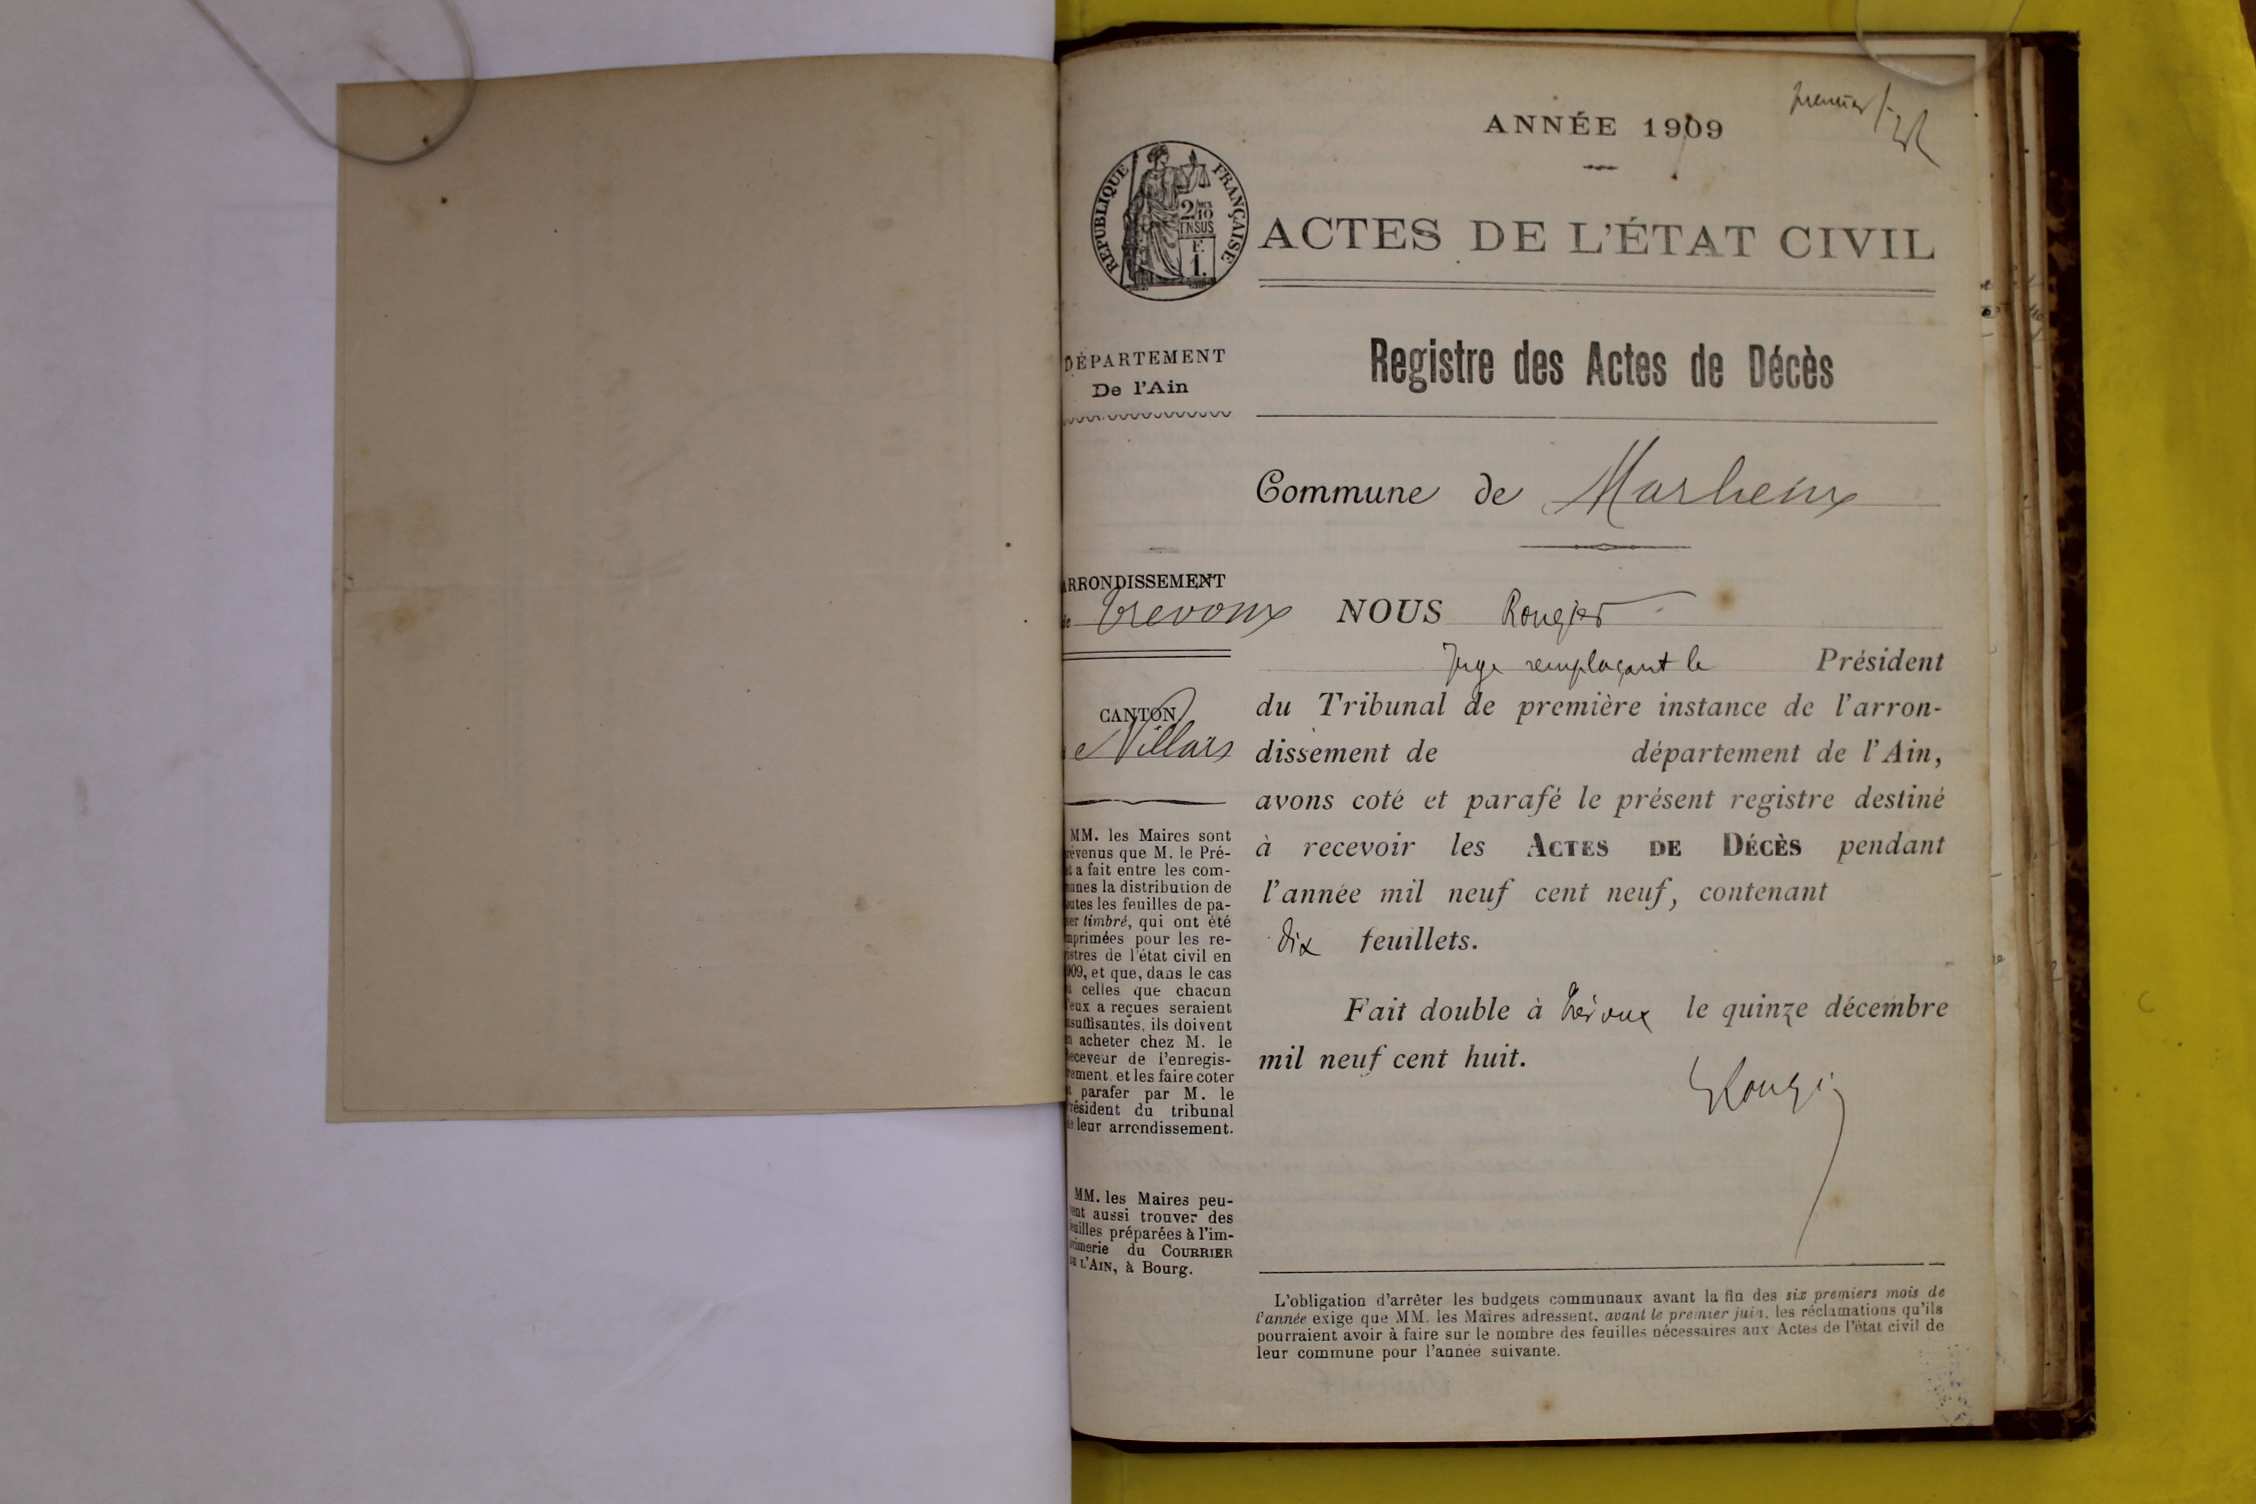 premier
ANNÉE 1909
RÉPUBLIQUE FRANÇAISE
2/10
EN SUS
F.
1.
ACTES DE L'ÉTAT CIVIL
DÉPARTEMENT
De l'Ain
Registre des Actes de Décès
Commune de Marlieux
ARRONDISSEMENT
de Trevoux
NOUS Rougier
Juge remplaçant le Président
CANTON
de Villars
du Tribunal de première instance de l'arron-
dissement de département de l'Ain,
avons coté et parafé le présent registre destiné
à recevoir les ACTES DE DÉCÈS pendant
l'année mil neuf cent neuf, contenant
dix feuillets.
Fait double à Trévoux le quinze décembre
mil neuf cent huit.
Rougier
MM. les Maires sont
prévenus que M. le Pré-
fet a fait entre les com-
munes la distribution de
toutes les feuilles de pa-
pier timbré, qui ont été
imprimées pour les re-
gistres de l'état civil en
1909, et que, dans le cas
où celles que chacun
d'eux a reçues seraient
insuffisantes, ils doivent
en acheter chez M. le
Receveur de l'enregis-
trement. et les faire coter
et parafer par M. le
Président du tribunal
de leur arrondissement.
MM. les Maires peu-
vent aussi trouver des
feuilles préparées à l'im-
primerie du COURRIER
DE L'AIN, à Bourg.
L'obligation d'arrêter les budgets communaux avant la fin des six premiers mois de
l'année exige que MM. les Maires adressent, avant le premier juin, les réclamations qu'ils
pourraient avoir à faire sur le nombre des feuilles nécessaires aux Actes de l'état civil de
leur commune pour l'année suivante.